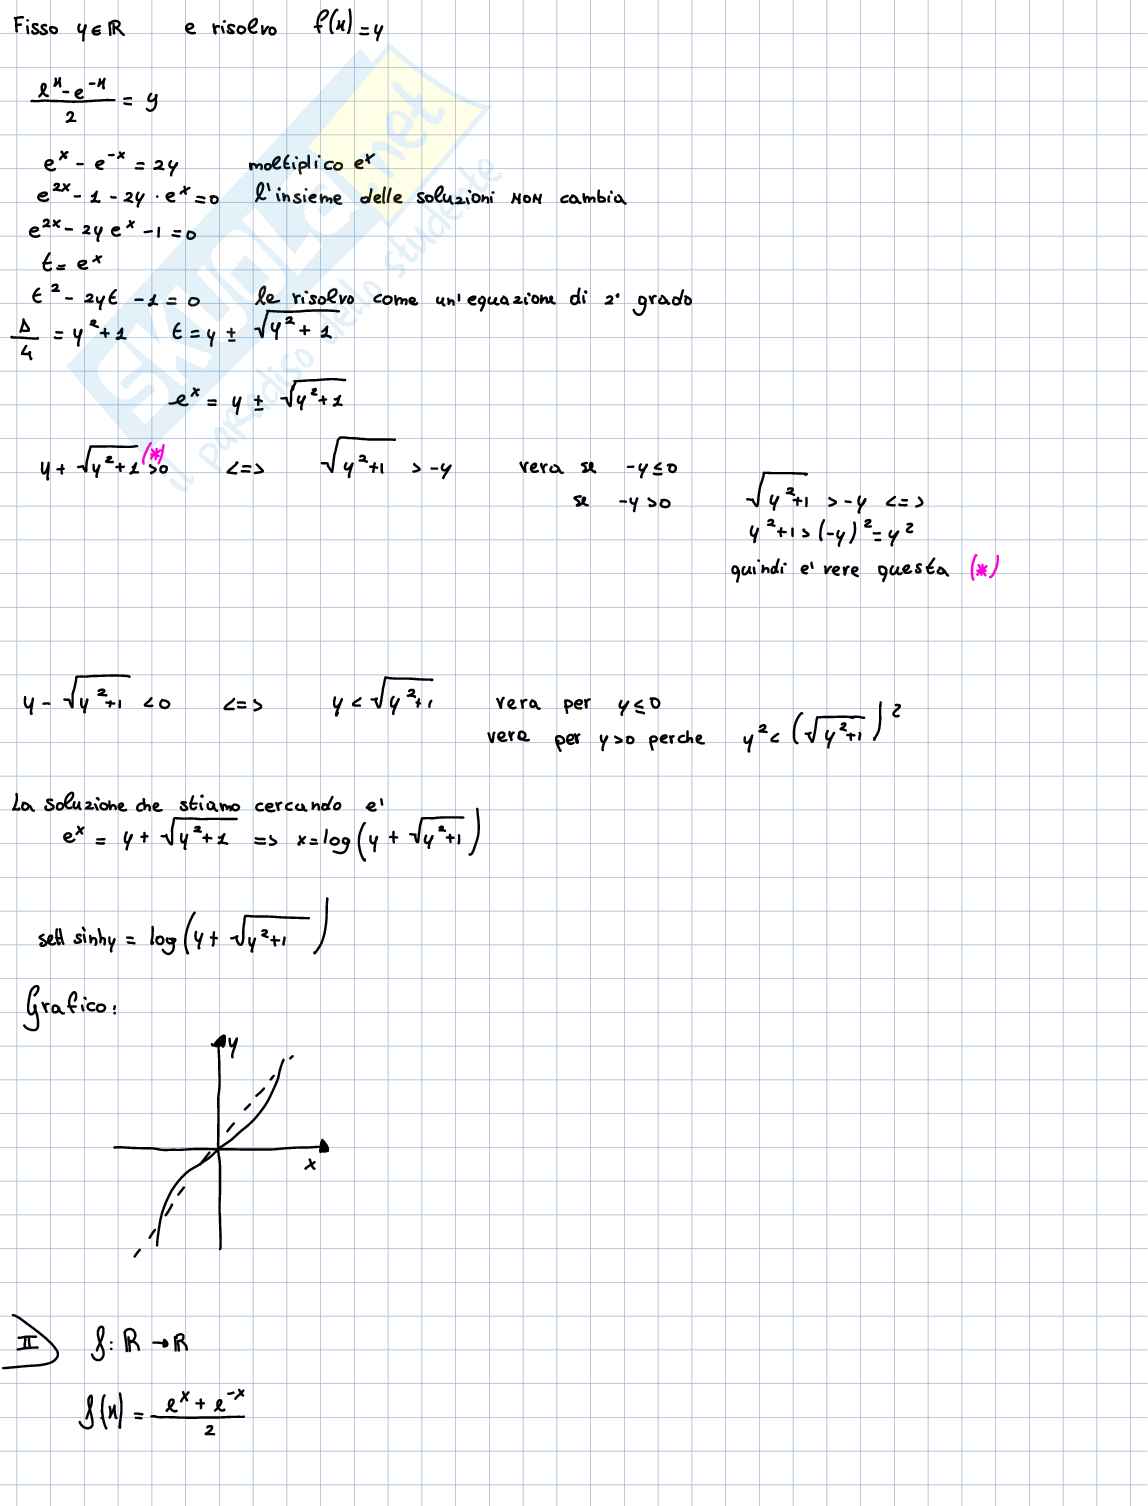 Fisso y ∈ ℝ e risolvo f(x) = y
(e^x - e^-x)/2 = y
e^x - e^-x = 2y moltiplico e^x
e^2x - 1 - 2y · e^x = 0 l'insieme delle soluzioni NON cambia
e^2x - 2y e^x - 1 = 0
t = e^x
t^2 - 2yt - 1 = 0 le risolvo come un'equazione di 2° grado
Δ/4 = y^2 + 1 t = y ± √(y^2 + 1)
e^x = y ± √(y^2 + 1)
y + √(y^2 + 1) > 0 (*) <=> √(y^2 + 1) > -y vera se -y ≤ 0
se -y > 0 √(y^2 + 1) > -y <=>
y^2 + 1 > (-y)^2 = y^2
quindi e' vere questa (*)
y - √(y^2 + 1) < 0 <=> y < √(y^2 + 1) vera per y ≤ 0
vera per y > 0 perche y^2 < (√(y^2 + 1))^2
La soluzione che stiamo cercando e'
e^x = y + √(y^2 + 1) => x = log(y + √(y^2 + 1))
sett sinhy = log(y + √(y^2 + 1))
Grafico:
y
x
II f: ℝ → ℝ
f(x) = (e^x + e^-x)/2
SKUOLA.net
il paradiso dello studente